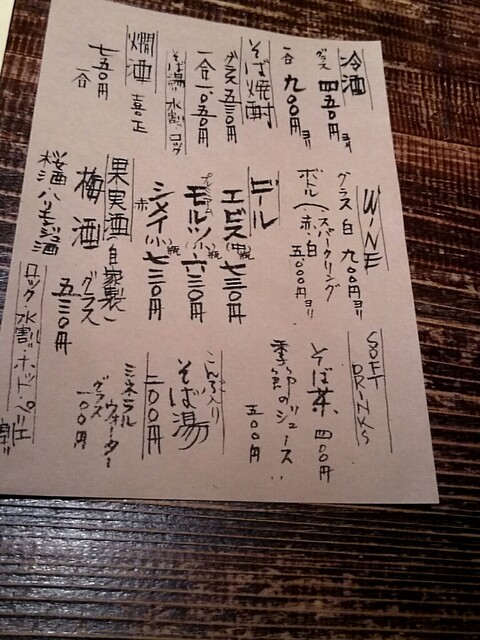 冷酒
グラス 四五〇円ヨリ
一合 九〇〇円ヨリ
そば焼酎
グラス 五三〇円
一合 一〇五〇円
そば湯・水割・ロック
燗酒 喜正
一合 七五〇円
WINE
グラス 白 九〇〇円ヨリ
ボトル(スパークリング 赤、白 五〇〇〇円ヨリ
ビール
エビス(中瓶) 七三〇円
プレミアム モルツ(小瓶) 六三〇円
シメイ(小瓶) 七三〇円
赤
果実酒(自家製)
梅酒 グラス 五三〇円
桜酒・ハリモモ酒
ロック・水割・ホット・ペリエ割
SOFT DRINKS
そば茶 四〇〇円
季節のジュース 五〇〇円
そば湯 二〇〇円
ミネラルウォーター
グラス 一〇〇円